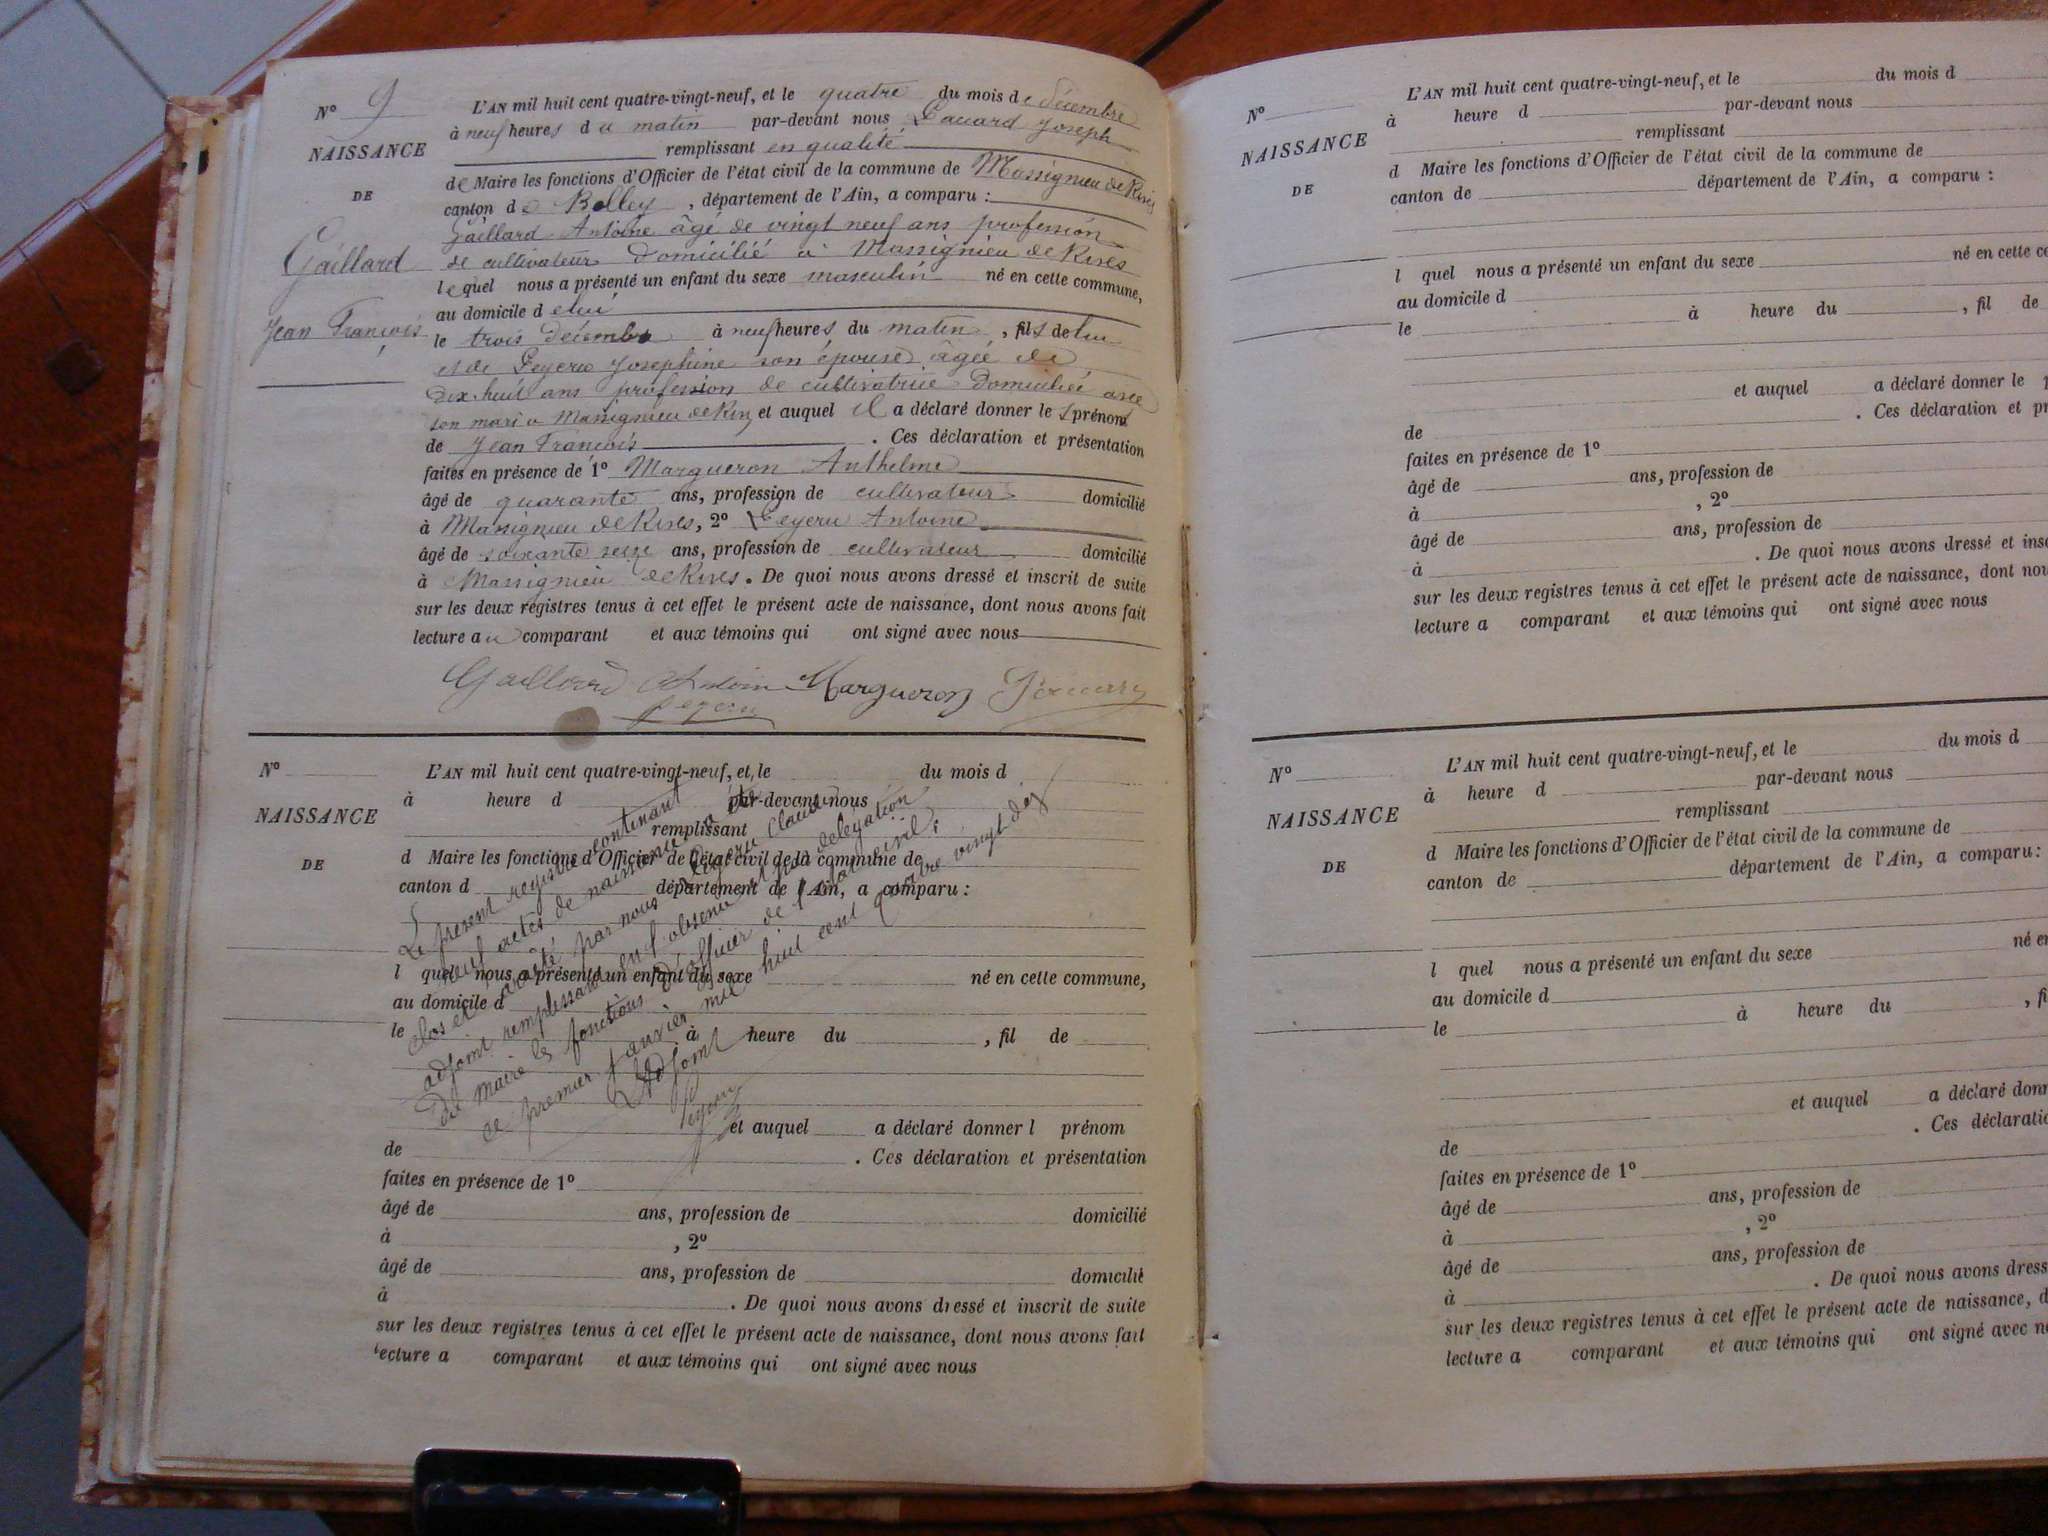 N° 9
NAISSANCE
DE
Gaillard
Jean François
L'AN mil huit cent quatre-vingt-neuf, et le quatre du mois de décembre
à neuf heures du matin par-devant nous Joseph
remplissant en qualité
de Maire les fonctions d'Officier de l'état civil de la commune de Massignieu de Rives
canton de Belley, département de l'Ain, a comparu :
Gaillard Antoine âgé de vingt neuf ans profession
de cultivateur domicilié à Massignieu de Rives
lequel nous a présenté un enfant du sexe masculin né en cette commune,
au domicile de lui
le trois décembre à neuf heures du matin, fils de lui
et de Peyeru Josephine son épouse âgée de
dix-huit ans profession de cultivatrice domiciliée avec
son mari à Massignieu de Riv et auquel il a déclaré donner les prénoms
de Jean François. Ces déclaration et présentation
faites en présence de 1° Margueron Anthelme
âgé de quarante ans, profession de cultivateur domicilié
à Massignieu de Rives, 2° Peyeru Antoine
âgé de soixante seize ans, profession de cultivateur domicilié
à Massignieu de Rives. De quoi nous avons dressé et inscrit de suite
sur les deux registres tenus à cet effet le présent acte de naissance, dont nous avons fait
lecture au comparant et aux témoins qui ont signé avec nous
Gaillard Antoine Margueron
Peyeru
N°
NAISSANCE
DE
L'AN mil huit cent quatre-vingt-neuf, et le du mois d
à heure d par-devant nous
remplissant
d Maire les fonctions d'Officier de l'état civil de la commune de
canton d département de l'Ain, a comparu :
l quel nous a présenté un enfant du sexe né en cette commune,
au domicile d
le à heure du , fil de
et auquel a déclaré donner l prénom
de . Ces déclaration et présentation
faites en présence de 1°
âgé de ans, profession de domicilié
à , 2°
âgé de ans, profession de domicilié
à . De quoi nous avons dressé et inscrit de suite
sur les deux registres tenus à cet effet le présent acte de naissance, dont nous avons fait
lecture a comparant et aux témoins qui ont signé avec nous
Le présent registre contenant
neuf actes de naissance a été
clos et arrêté par nous Peyeru Claude
adjoint remplissant en l'absence et par délégation
du maire les fonctions d'officier de l'état civil;
ce premier janvier mil huit cent quatre vingt dix
L'Adjoint
Peyeru
N°
NAISSANCE
DE
L'AN mil huit cent quatre-vingt-neuf, et le du mois d
à heure d par-devant nous
remplissant
d Maire les fonctions d'Officier de l'état civil de la commune de
canton de département de l'Ain, a comparu :
l quel nous a présenté un enfant du sexe né en cette co
au domicile d
le à heure du , fil de
et auquel a déclaré donner le p
de . Ces déclaration et pr
faites en présence de 1°
âgé de ans, profession de
à , 2°
âgé de ans, profession de
à . De quoi nous avons dressé et insc
sur les deux registres tenus à cet effet le présent acte de naissance, dont nou
lecture a comparant et aux témoins qui ont signé avec nous
N°
NAISSANCE
DE
L'AN mil huit cent quatre-vingt-neuf, et le du mois d
à heure d par-devant nous
remplissant
d Maire les fonctions d'Officier de l'état civil de la commune de
canton de département de l'Ain, a comparu :
l quel nous a présenté un enfant du sexe né en
au domicile d
le à heure du , fi
et auquel a déclaré donn
de . Ces déclaratio
faites en présence de 1°
âgé de ans, profession de
à , 2°
âgé de ans, profession de
à . De quoi nous avons dress
sur les deux registres tenus à cet effet le présent acte de naissance, d
lecture a comparant et aux témoins qui ont signé avec no